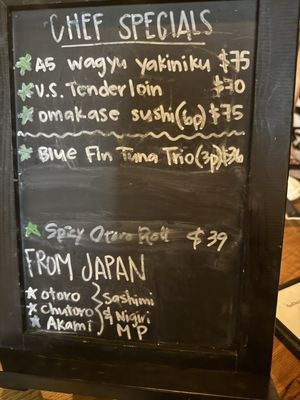 CHEF SPECIALS
A5 wagyu yakiniku $75
U.S. Tenderloin $70
omakase sushi (6p) $75
Blue Fin Tuna Trio (3p) $36
Spicy Otoro Roll $39
FROM JAPAN
otoro
Chutoro
Akami
Sashimi
& Nigiri
MP